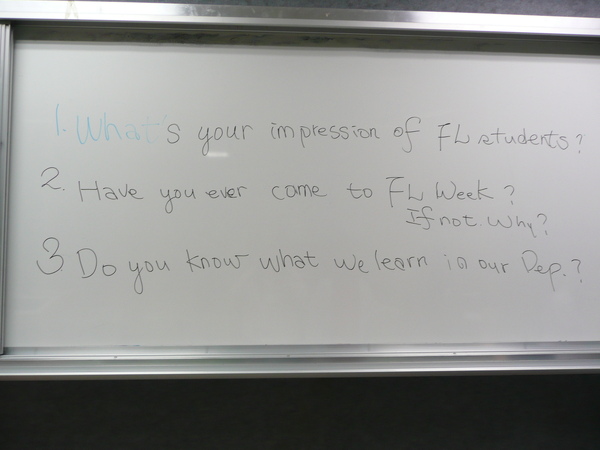 1. What's your impression of FL students?
2. Have you ever come to FL Week?
If not. Why?
3. Do you know what we learn in our Dep.?